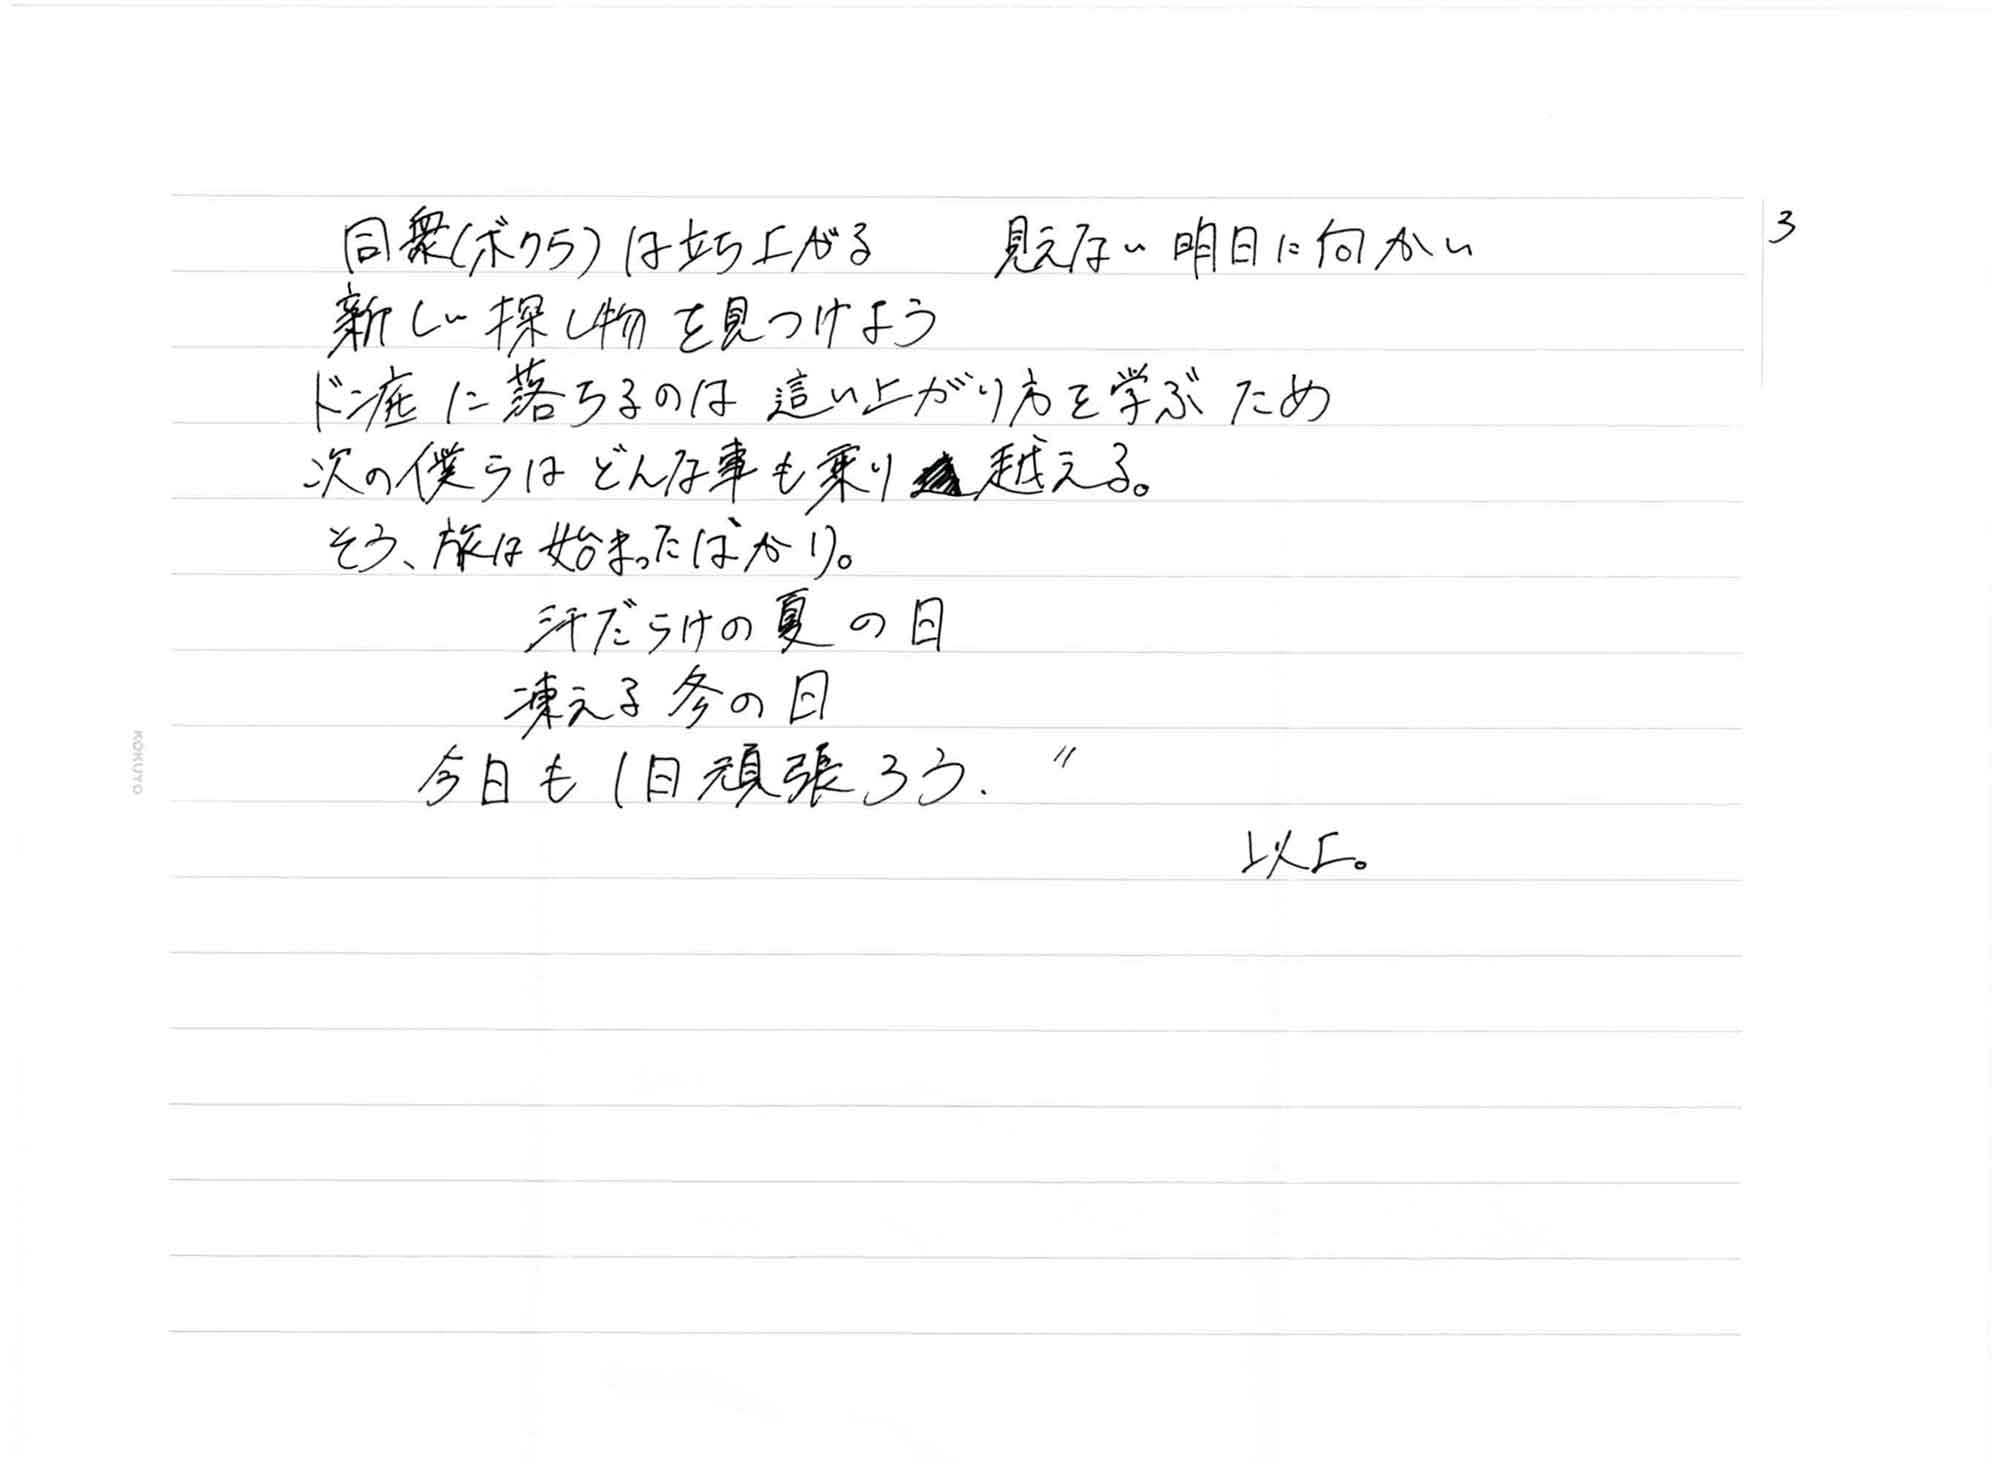 3
同衆(ボクラ)は立ち上がる　見えない明日に向かい
新しい探し物を見つけよう
ドン底に落ちるのは 這い上がり方を学ぶため
次の僕らはどんな事も乗り越える。
そう、旅は始まったばかり。
汗だらけの夏の日
凍える冬の日
今日も1日頑張ろう. 〃
以上。
KOKUYO